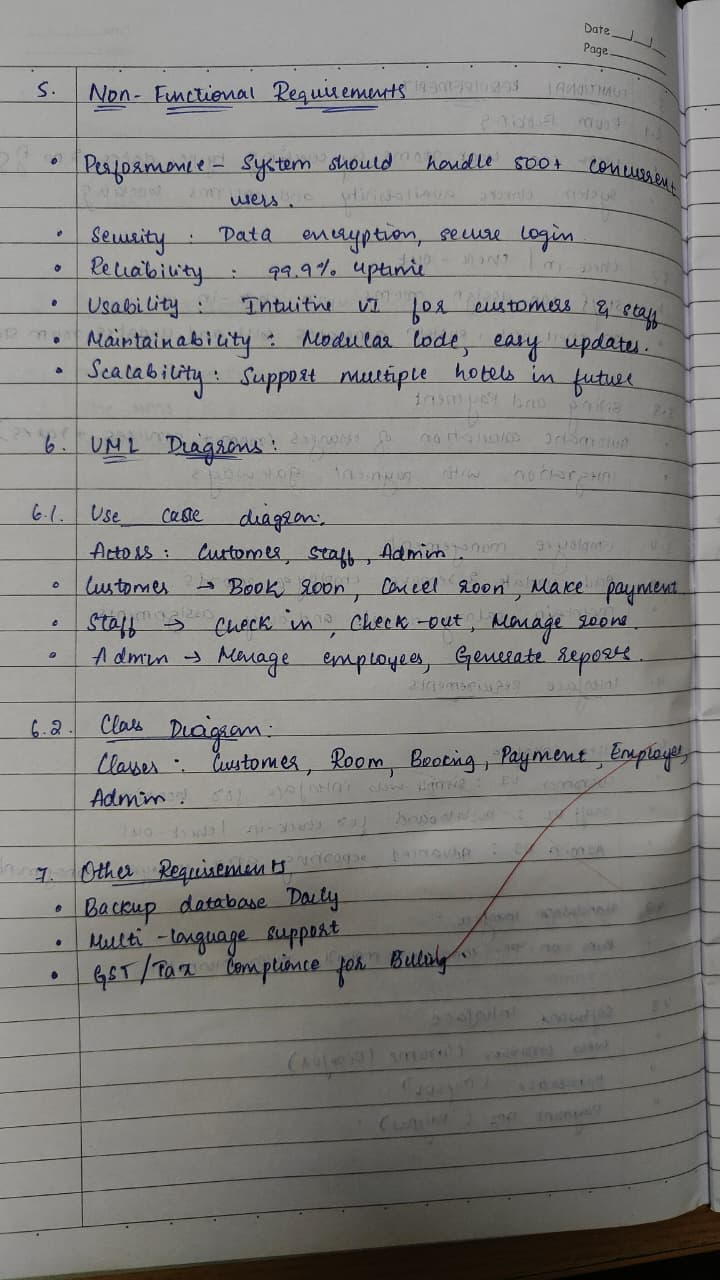 Date
Page
5. Non-Functional Requirements
• Performance - System should handle 500+ concurrent
users.
• Security : Data encryption, secure login
• Reliability : 99.9% uptime
• Usability : Intuitive UI for customers & staff
• Maintainability : Modular code, easy updates.
• Scalability : Support multiple hotels in future
6. UML Diagrams :
6.1. Use case diagram:
Actors : Customer, Staff, Admin.
• Customer → Book room, Cancel room, Make payment
• Staff → Check in, Check-out, Manage rooms.
• Admin → Manage employees, Generate reports.
6.2. Class Diagram:
Classes : Customer, Room, Booking, Payment, Employee,
Admin.
7. Other Requirements
• Backup database Daily
• Multi-language support
• GST/Tax Compliance for Billing.